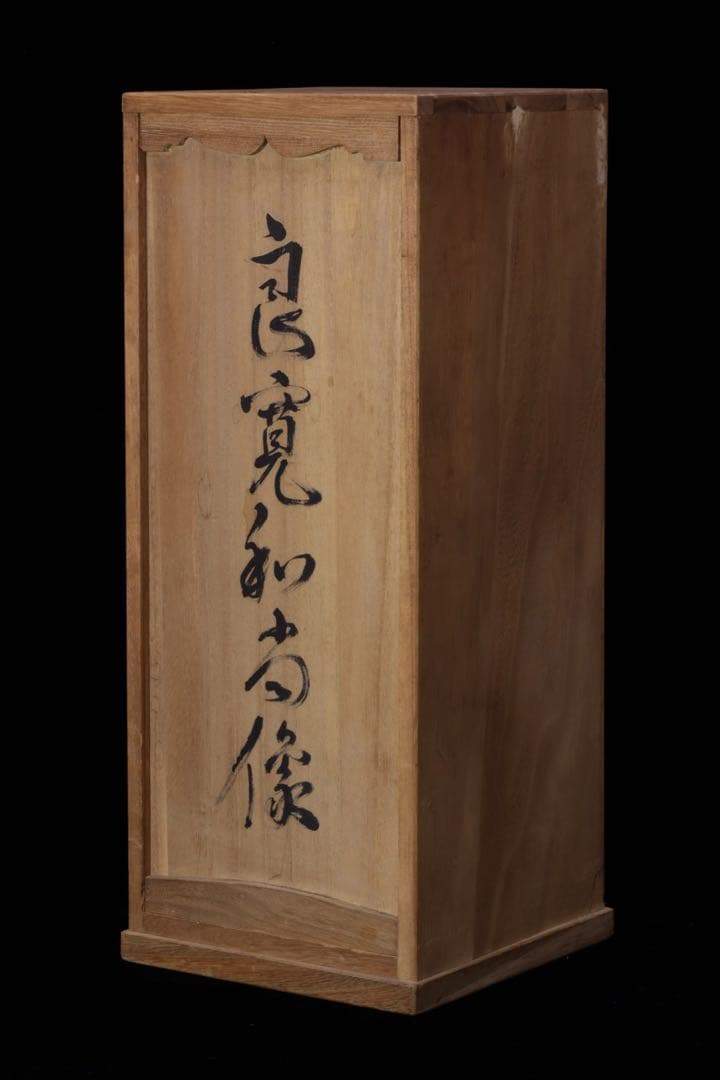 良寛和尚像